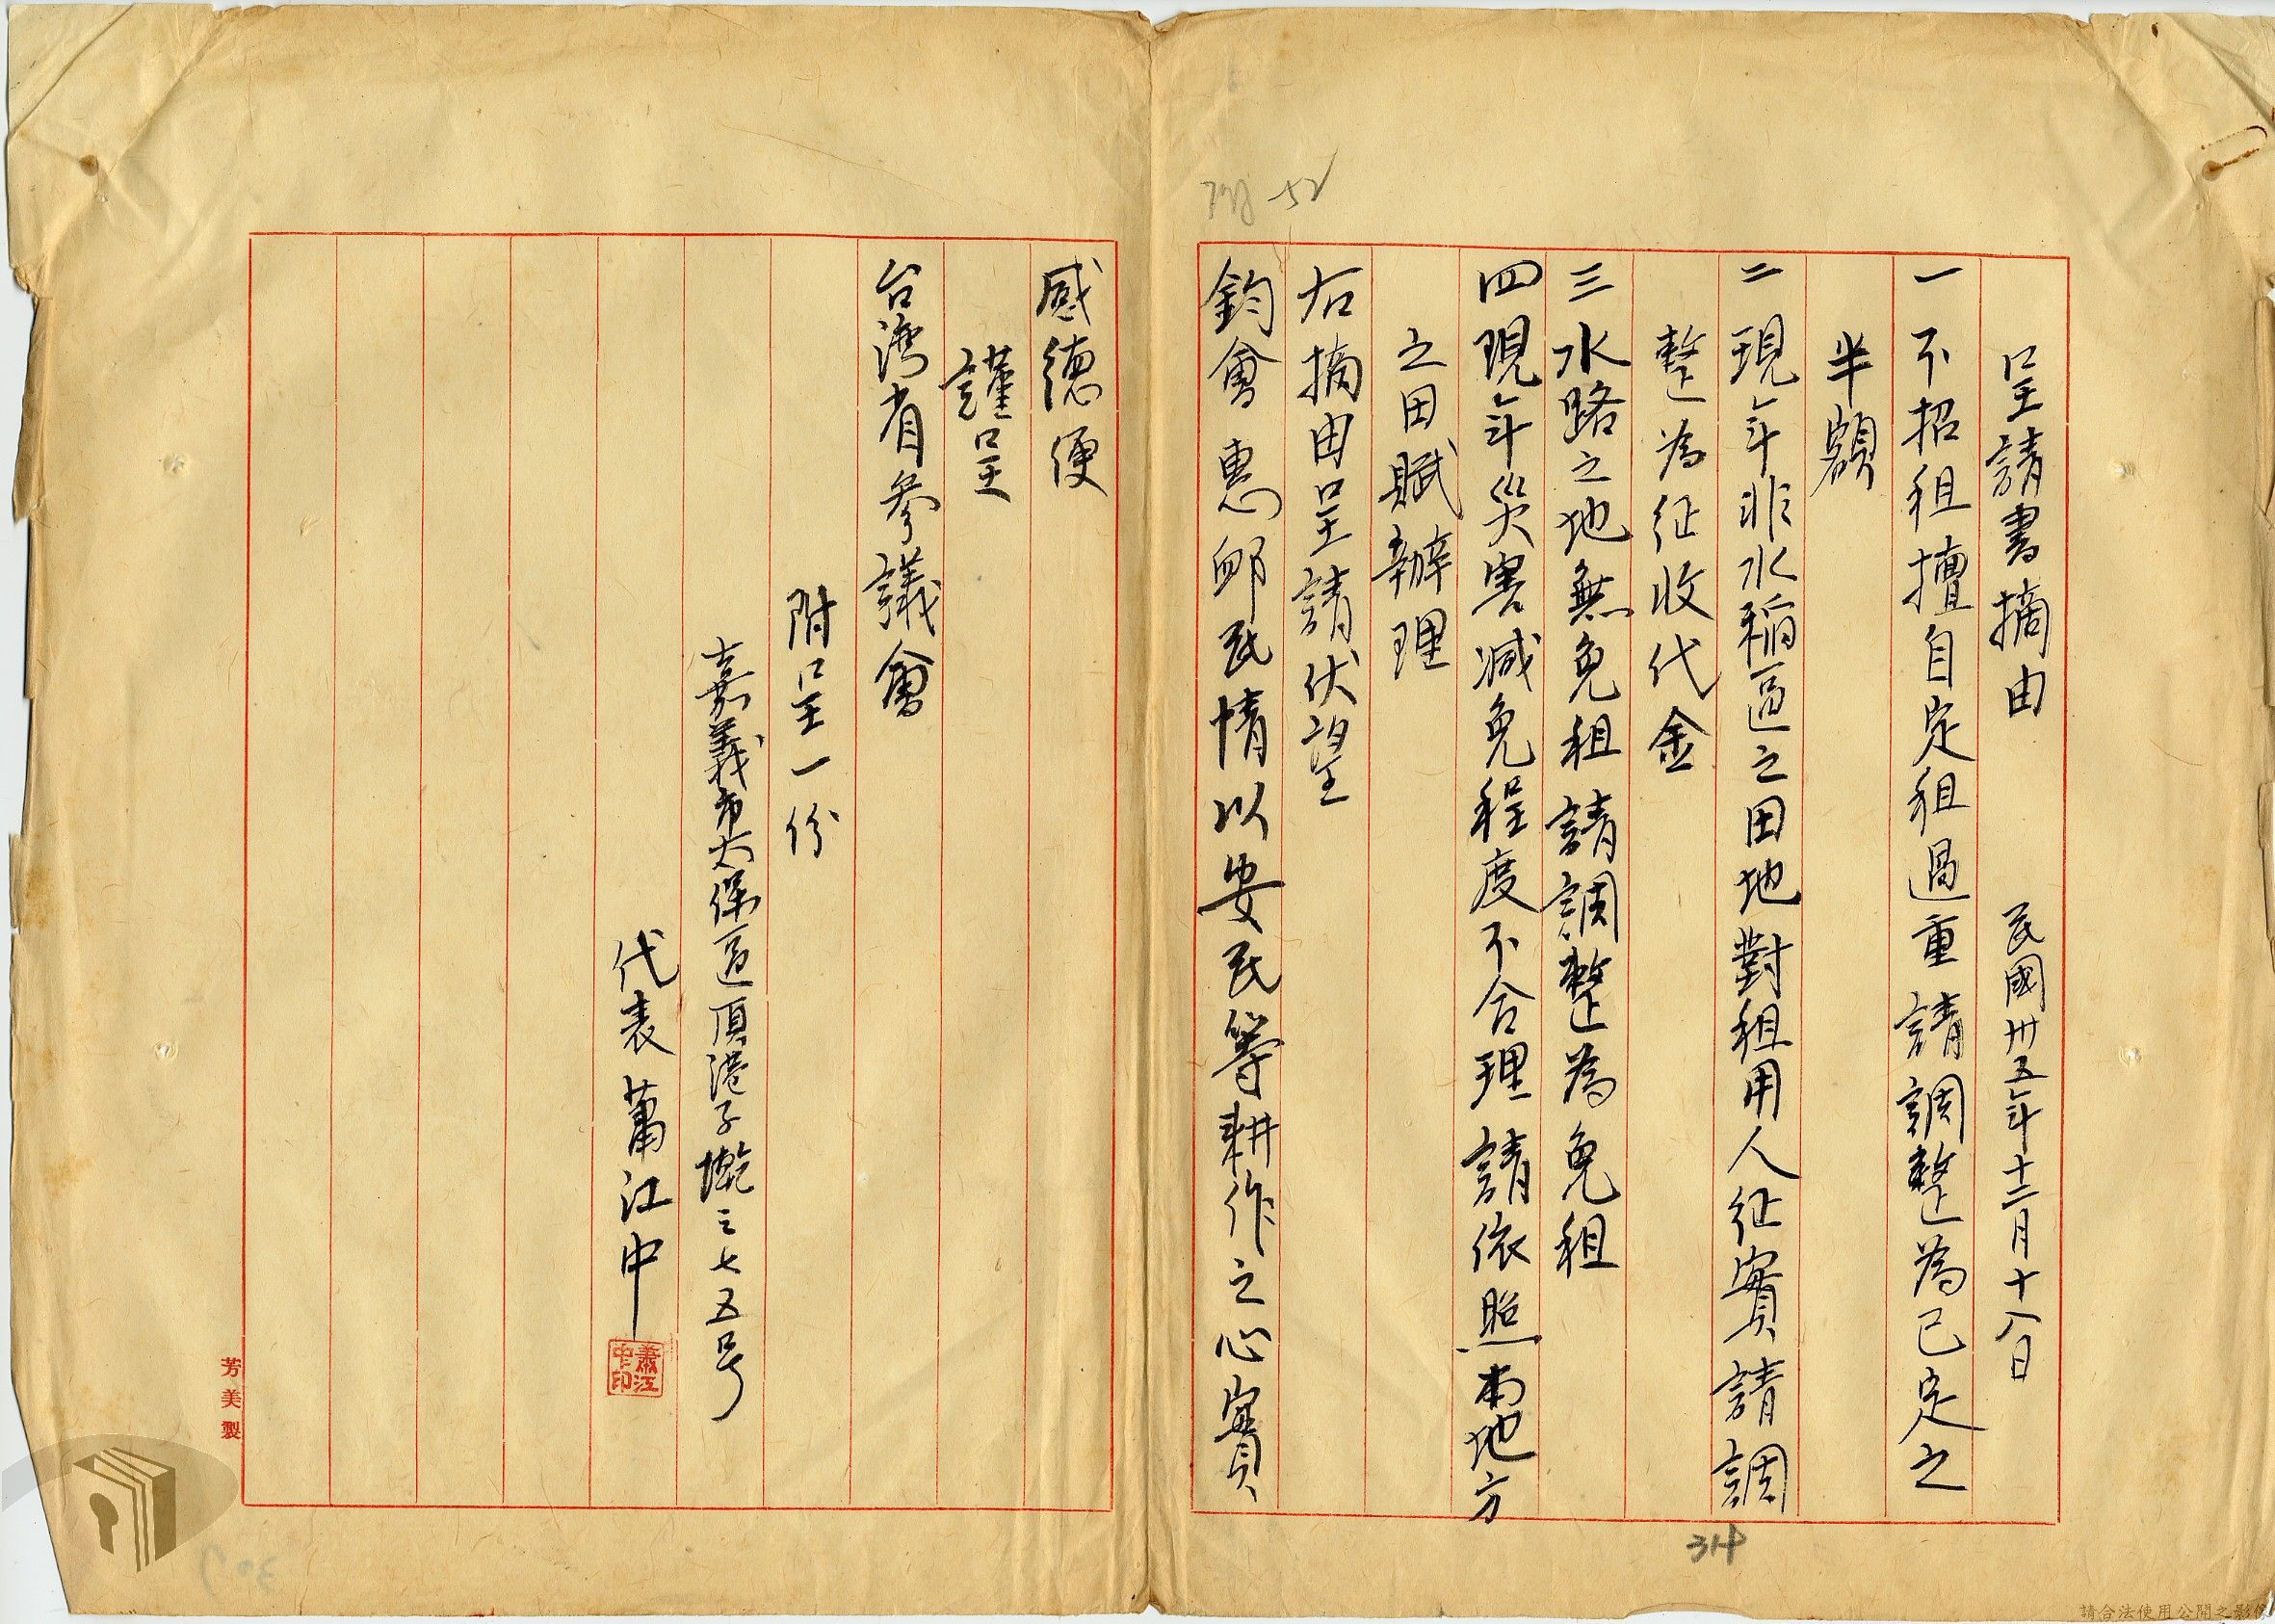 呈請書摘由　民國卅五年十二月十八日
一不招租擅自定租過重請調整為已定之
半額
二現年非水稻區之田地對租用人征實請調
整為征收代金
三水路之地無免租請調整為免租
四現年災害減免程度不合理請依照本地方
之田賦辦理
右摘由呈請伏望
鈞會惠卹民情以安民等耕作之心實
感德便
謹呈
台灣省參議會
附呈一份
嘉義市太保區頂港子墘三七五号
代表 蕭江中
蕭江中印
芳美製
314
請合法使用公開之影像